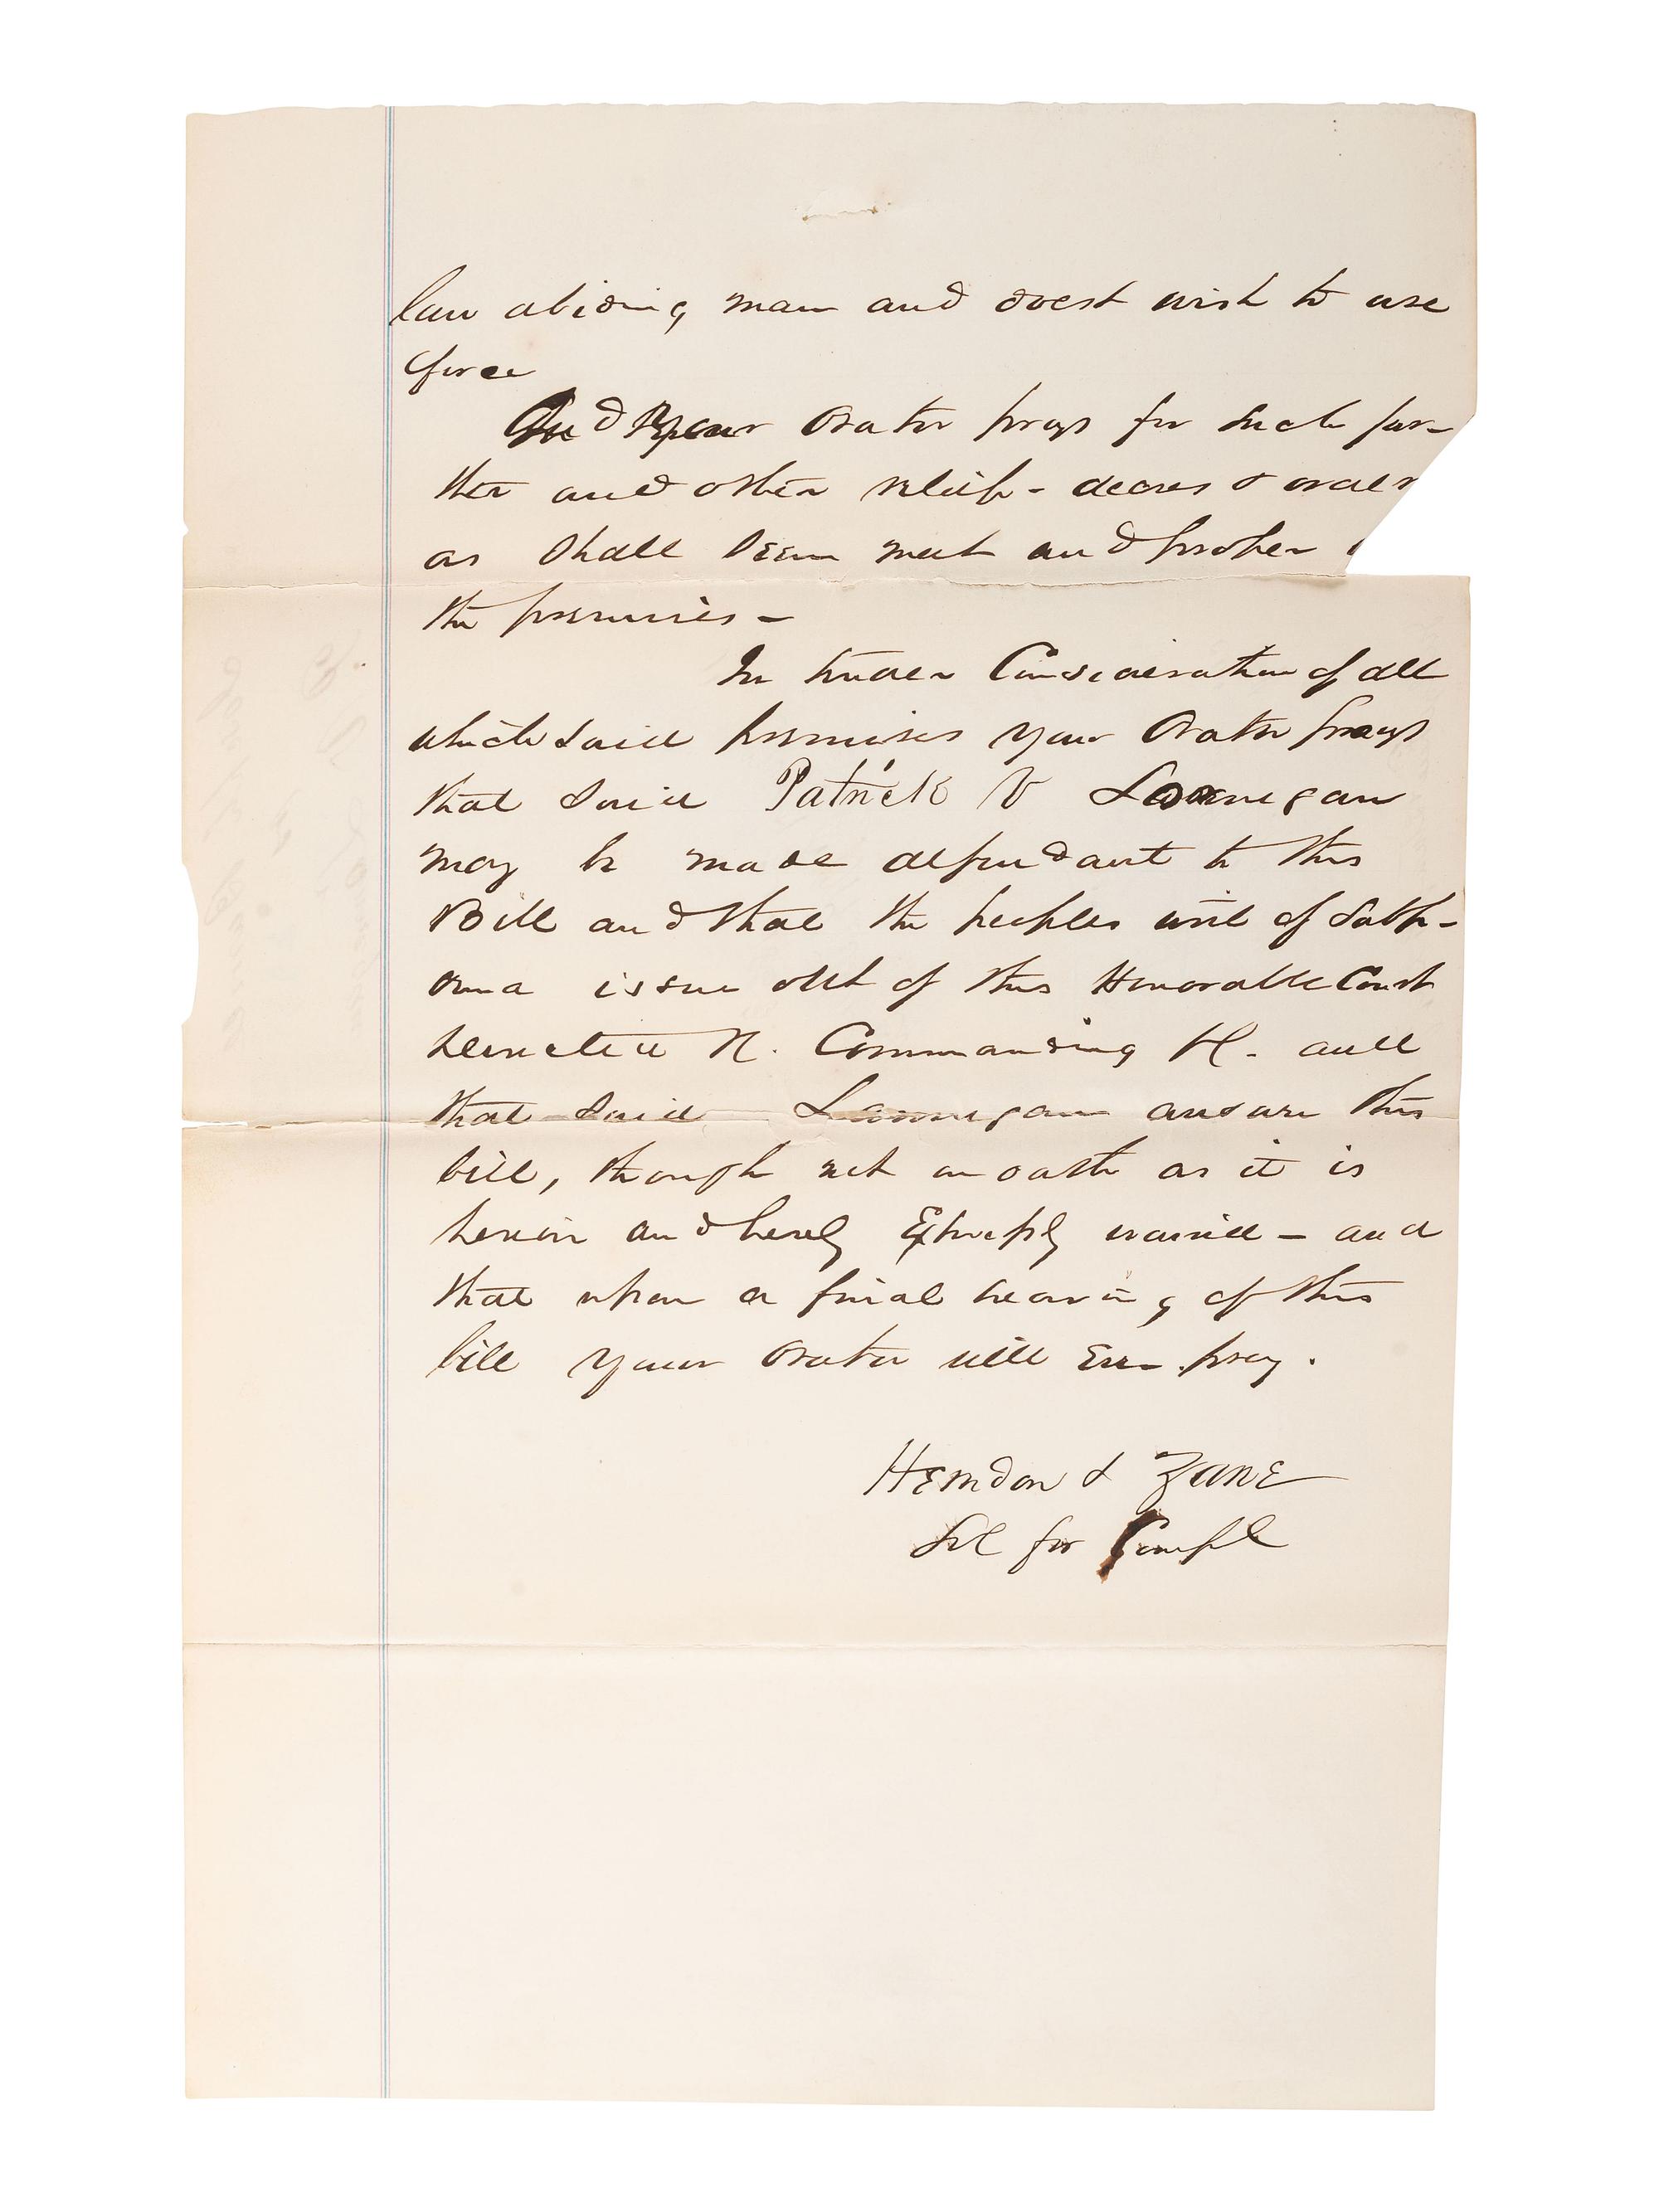 law abiding man and doest wish to use
force
And your Orator prays for such fur-
ther and other relief - decrees & order
as shall seem meet and proper
the premises -
In tender Consideration of all
which said premises your Orator prays
that said Patrick V Lannegan
may be made defendant to this
Bill and that the peoples writ of Subp-
oena issue out of this Honorable Court
directed &c. Commanding &c. and
that said Lannegan answer this
bill, though not on oath as it is
herein and hereby Expressly waived - and
that upon a final hearing of this
bill your Orator will Ever pray.
Herndon & Zane
Sol for Compl